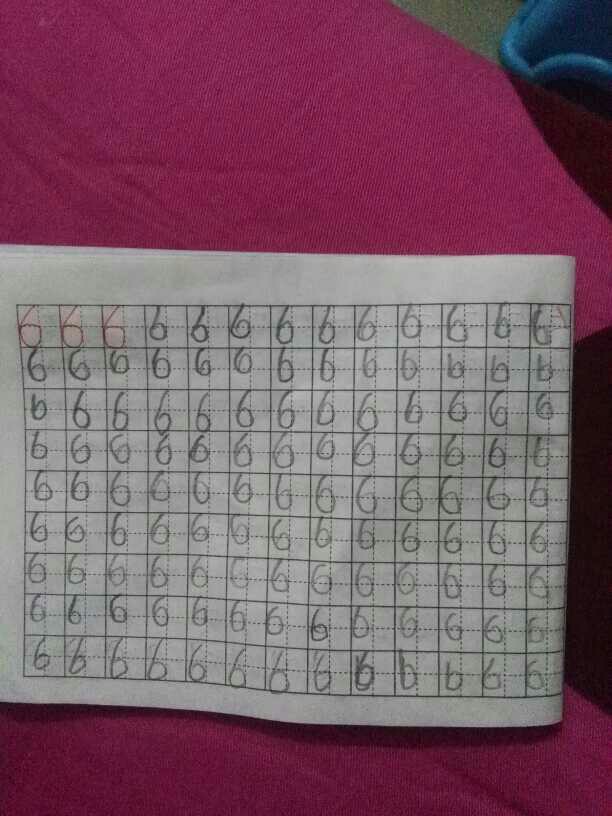 6 6 6 6 6 6 6 6 6 6 6 6 6
6 6 6 6 6 6 6 6 6 6 6 6 6
6 6 6 6 6 6 6 6 6 6 6 6 6
6 6 6 6 6 6 6 6 6 6 6 6 6
6 6 6 6 6 6 6 6 6 6 6 6 6
6 6 6 6 6 6 6 6 6 6 6 6 6
6 6 6 6 6 6 6 6 6 6 6 6 6
6 6 6 6 6 6 6 6 6 6 6 6 6
6 6 6 6 6 6 6 6 6 6 6 6 6